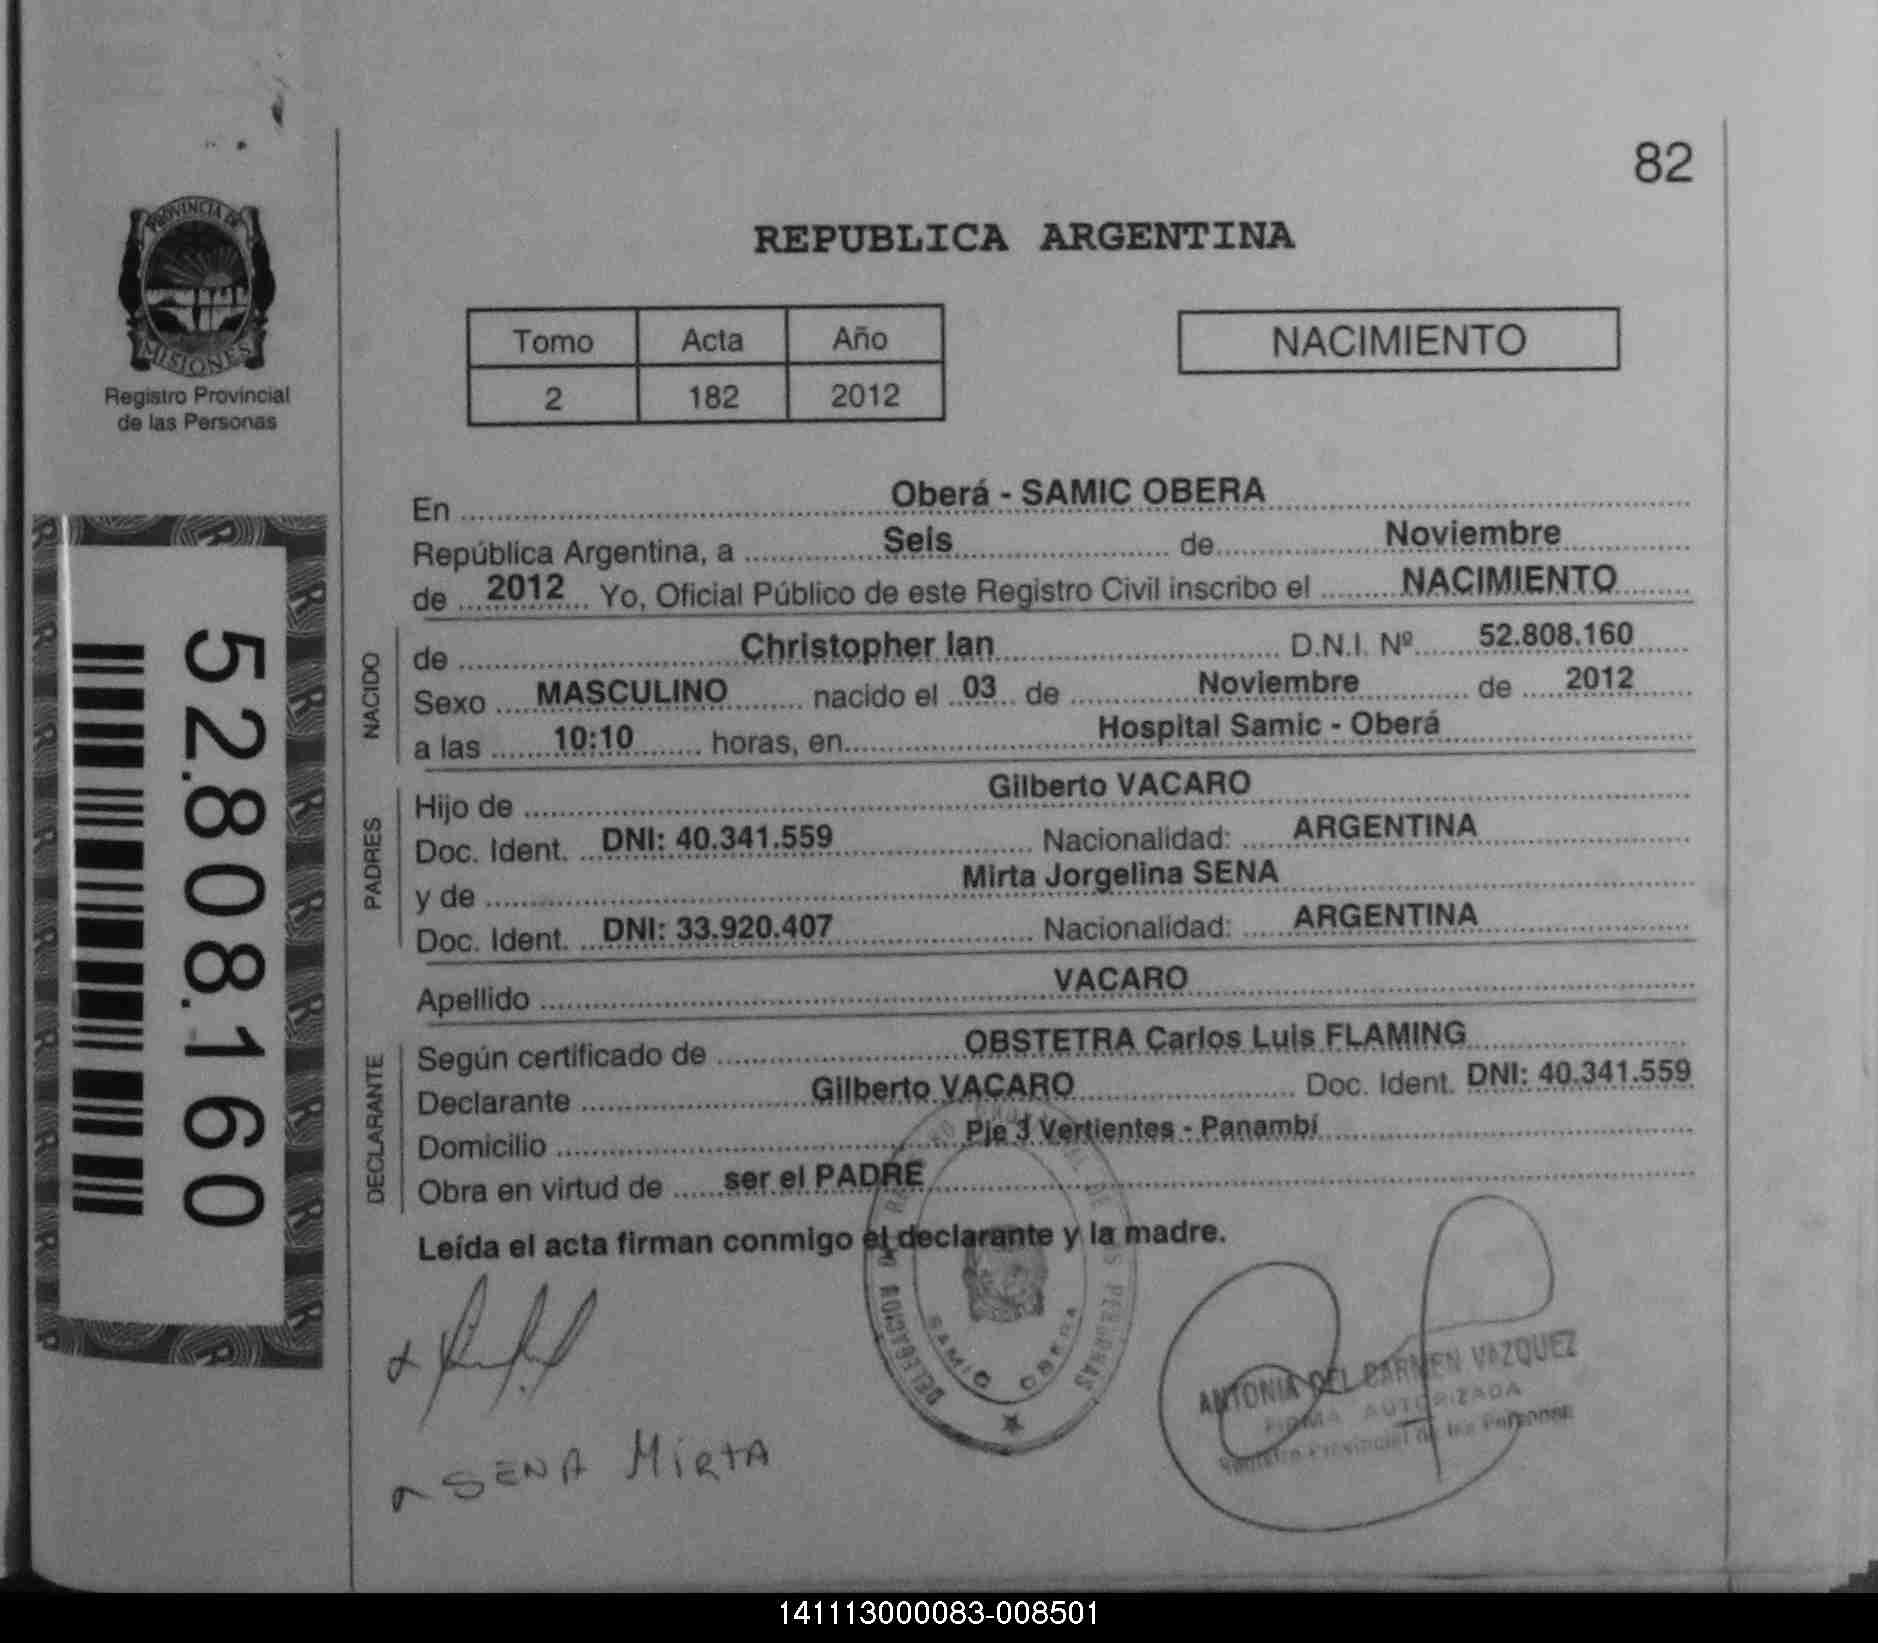 82
PROVINCIA DE
MISIONES
Registro Provincial
de las Personas
REPUBLICA ARGENTINA
Tomo Acta Año
2 182 2012
NACIMIENTO
En Oberá - SAMIC OBERA
República Argentina, a Seis de Noviembre
de 2012 Yo, Oficial Público de este Registro Civil inscribo el NACIMIENTO
NACIDO
de Christopher Ian D.N.I. Nº 52.808.160
Sexo MASCULINO nacido el 03 de Noviembre de 2012
a las 10:10 horas, en Hospital Samic - Oberá
PADRES
Hijo de Gilberto VACARO
Doc. Ident. DNI: 40.341.559 Nacionalidad: ARGENTINA
y de Mirta Jorgelina SENA
Doc. Ident. DNI: 33.920.407 Nacionalidad: ARGENTINA
Apellido VACARO
DECLARANTE
Según certificado de OBSTETRA Carlos Luis FLAMING
Declarante Gilberto VACARO Doc. Ident. DNI: 40.341.559
Domicilio Pje 3 Vertientes - Panambí
Obra en virtud de ser el PADRE
Leída el acta firman conmigo el declarante y la madre.
52.808.160
SENA MIRTA
DELEGACION
SAMIC OBERA
ANTONIA DEL CARMEN VAZQUEZ
FIRMA AUTORIZADA
Registro Provincial de las Personas
141113000083-008501